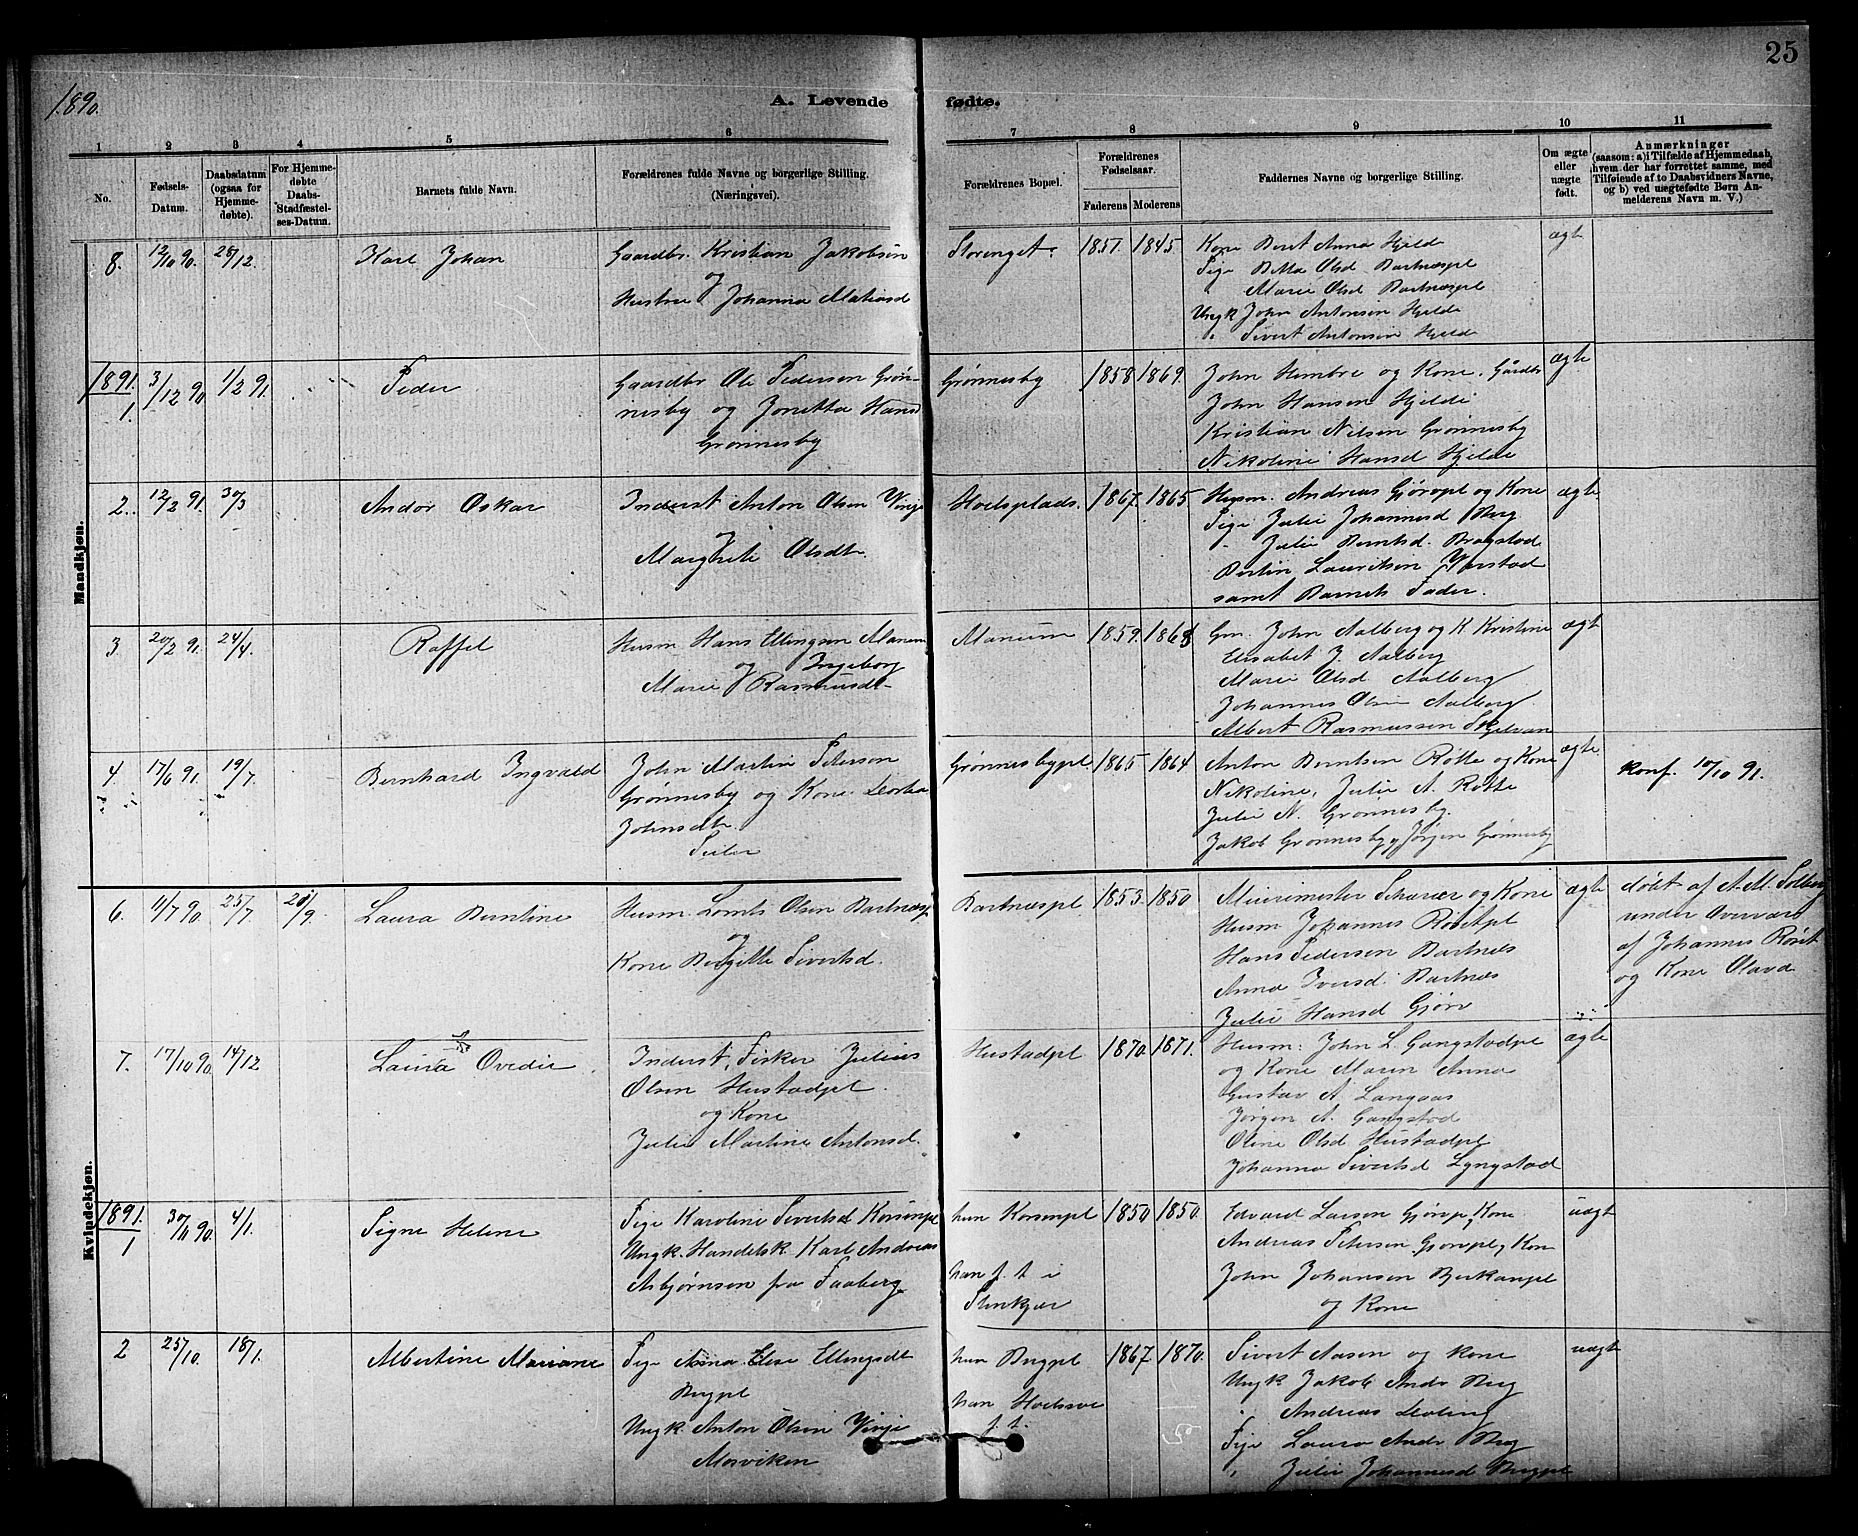 25
1890.
A. Levende fødte.
1 2 3 4 5 6 7 8 9 10 11
No.
Fødsels-Datum.
Daabsdatum (ogsaa for Hjemme-døbte).
For Hjemme-døbte Daabs-Stadfæstel-ses-Datum.
Barnets fulde Navn.
Forældrenes fulde Navne og borgerlige Stilling. (Næringsvei).
Forældrenes Bopæl.
Forældrenes Fødselsaar.
Faderens Moderens
Faddernes Navne og borgerlige Stilling.
Om ægte eller uægte født.
Anmærkninger
(saasom: a) i Tilfælde af Hjemmedaab, hvem der har forrettet samme, med Tilføiende af to Daabsvidners Navne, og b) ved uægtefødte Børn An-melderens Navn m. V.)
Mandkjøn.
8. 12/10 90. 28/12. Karl Johan
Gaardbr. Kristian Jakobsen
og
Hustru Johanna Matiasd
Storenget. 1851. 1845
Kone Berit Anna Hjelde
Pige Betta Olsd Bartnæspl
Marie Olsd Bartnæspl
Ungk John Antonsen Hjelde
" Sivert Antonsen Hjelde
ægt
1891.
1. 3/12 90 1/2 91. Peder
Gaardbr Ole Pedersen Grøn-
nesby og Jonetta Hansd
Grønnesby
Grønnesby 1858 1869.
John Himbre og Kone. Gårdbr
John Hansen Hjelde
Kristian Nilsen Grønnesby
Nikoline Hansd Hjelde
ægte
2. 12/2 91. 30/3 Andor Oskar
Inderst Anton Olsen Vinje
og
Margrete Olsdt.
Hoelsplads. 1867. 1865
Husm. Andreas Gjørvpl og Kone
Pige Julie Johannesd Berg
" Julie Berntsd. Bragstad
Ostin Lauritsen Hustad
samt Barnets Fader.
ægte
3 20/2 91. 24/4. Roffel
Husm Hans Ellingsen Manum
og Ingeborg
Marie Rasmusdt
Manum 1859. 1868
Gm. John Aalberg og K. Kristine
Elisabet J. Aalberg
Marie Olsd Aalberg
Johannes Olsen Aalberg
Albert Rasmussen Skjelvan
ægt
4. 17/6 91. 19/7. Bernhard Ingvald
John Martin Peterson
Grønnesby og Kone Dorthea
Johnsdtr.
Seiler
Grønnesbypl 1865 1864
Anton Berntsen Rotte og Kone
Nikoline, Julie A. Rotte
Julie N. Grønnesby.
Jakob Grønnesby, Jørgen Grønnesby
ægte
Konf. 10/10 91.
Kvindekjøn.
6. 11/7 90. 25/7 28/9. Laura Berntine
Husm Lornts Olsen Bartnæspl
og
Kone Birgitte Sivertsd.
Bartnæspl. 1853. 1850
Muremester Scherer og Kone
Husm Johannes Røsetpl
Hans Pedersen Bartnæs
Anna Iversd. Bartnæs
Julie Hansd Gjørv
ægte
døbt af A. M. Solberg
under Overvær
af Johannes Røset
og Kone Olava
7. 17/10 90. 14/12 Laura Ovedie
Inderst, Fisker Julius
Olsen Hustadpl.
og Kone
Julie Martine Antonsd.
Hustadpl 1870. 1871.
Husm. John L. Gangstadpl
og Kone Maren Anna
Gustav A. Langaas
Jørgen A. Gangstad
Oline Olsd Hustadpl
Johanna Sivertsd Lyngstad
ægte
1891.
1 30/11 90. 4/1. Signe Helene
Pige Karoline Sivertsd Korsenpl
Ungk. Handelsk. Karl Andreas
Asbjørnsen fra Faaberg
hun Korsenpl
han f. t. i
Stenkjær
1850 1850.
Edvard Larsen Gjørvpl, Kone
Andreas Petersen Gjørvpl, Kone
John Johansen Birkanpl
og Kone
uægt
2 25/10. 18/1. Albertine Mariane
Pige Anna Else Ellingsdt
Bergpl
Ungk. Anton Olsen Vinje
Mosviken
hun Bergpl
han
f. t.
1867. 1870.
Sivert Aasen og Kone
Ungk Jakob Andr Berg
" Andreas
Pige Laura Andr Berg
" Julie Johannesd Bergpl
uægt